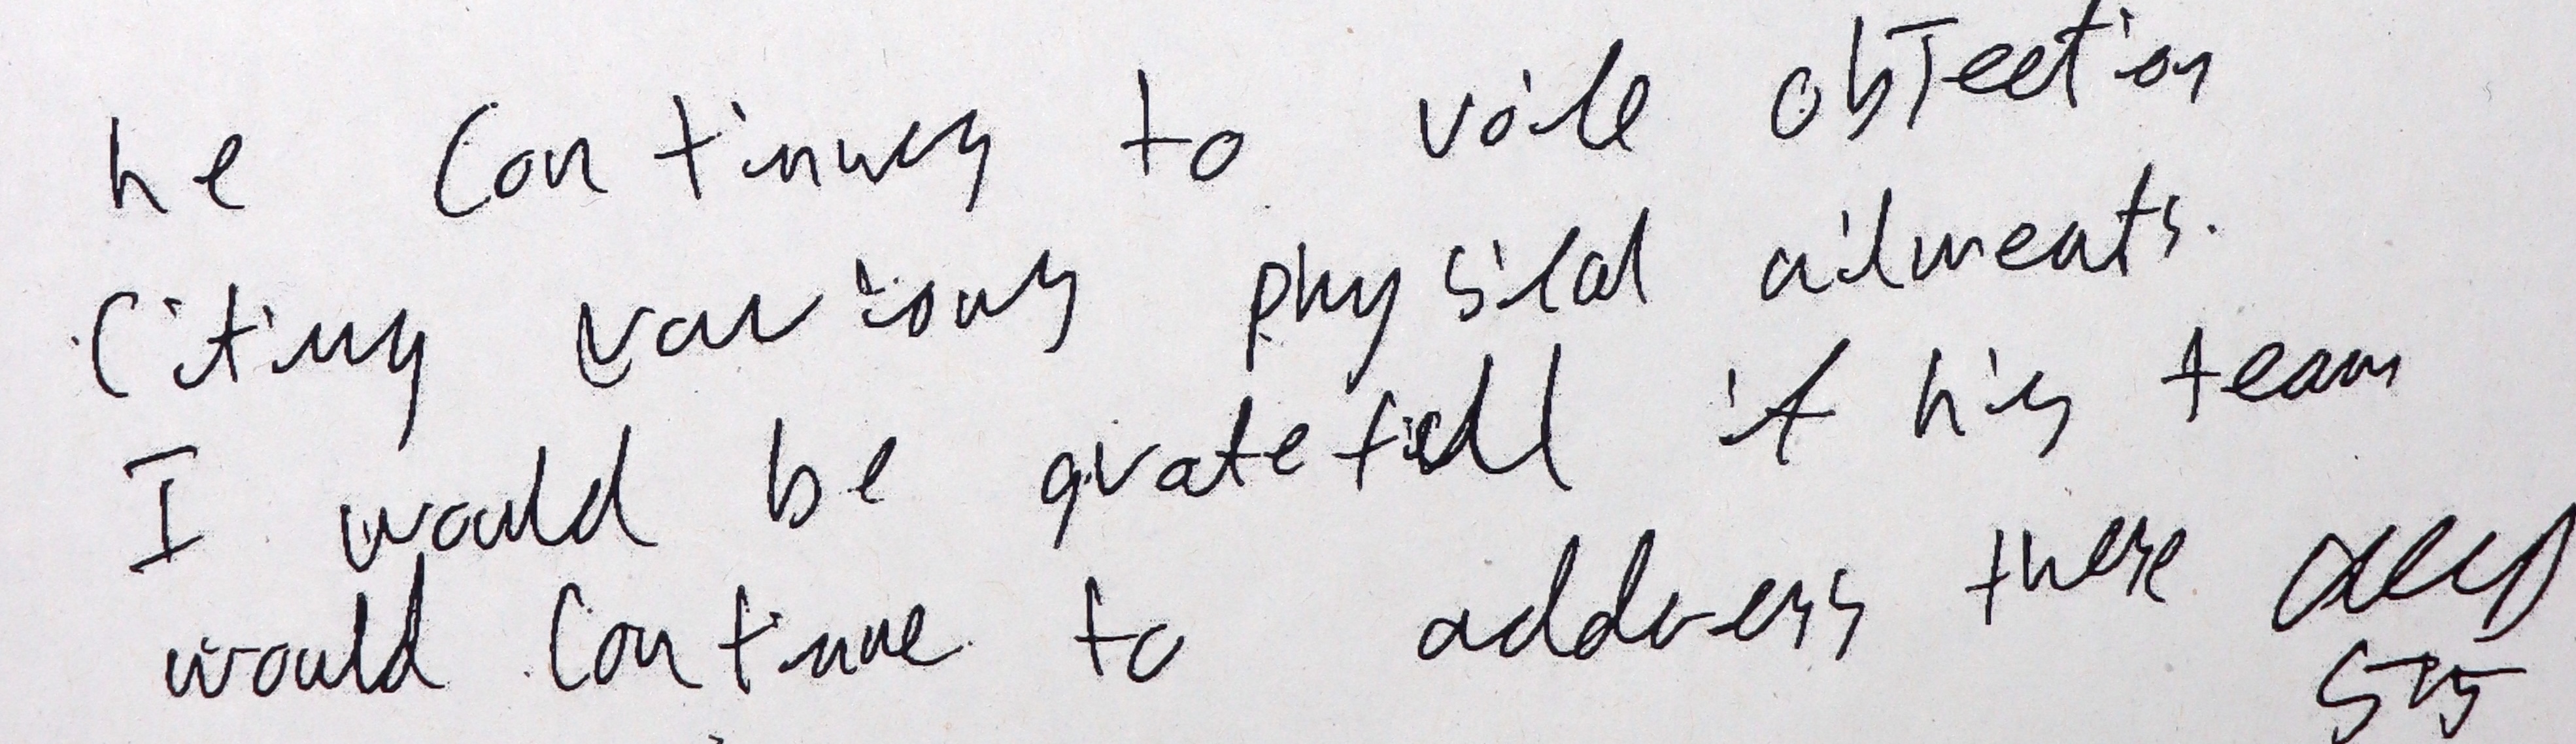 he continues to voice objection
citing various physical ailments.
I would be gratefull if his team
would continue to address these